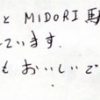 と MIDORI
ています.
も おいしいで